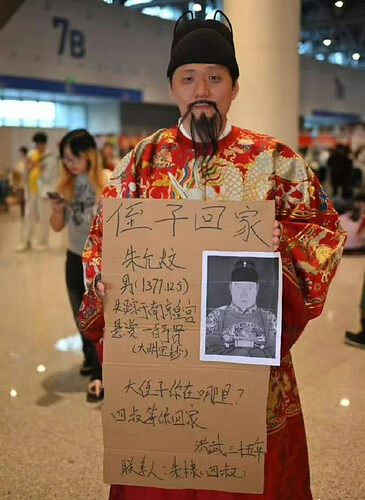 7B
侄子回家
朱允炆
男(1377.12.5)
失踪于南京皇宫
悬赏一百万贯
(大明宝钞)
大侄子你在哪里?
四叔等你回家
洪武三十五年
联系人:朱棣(四叔)